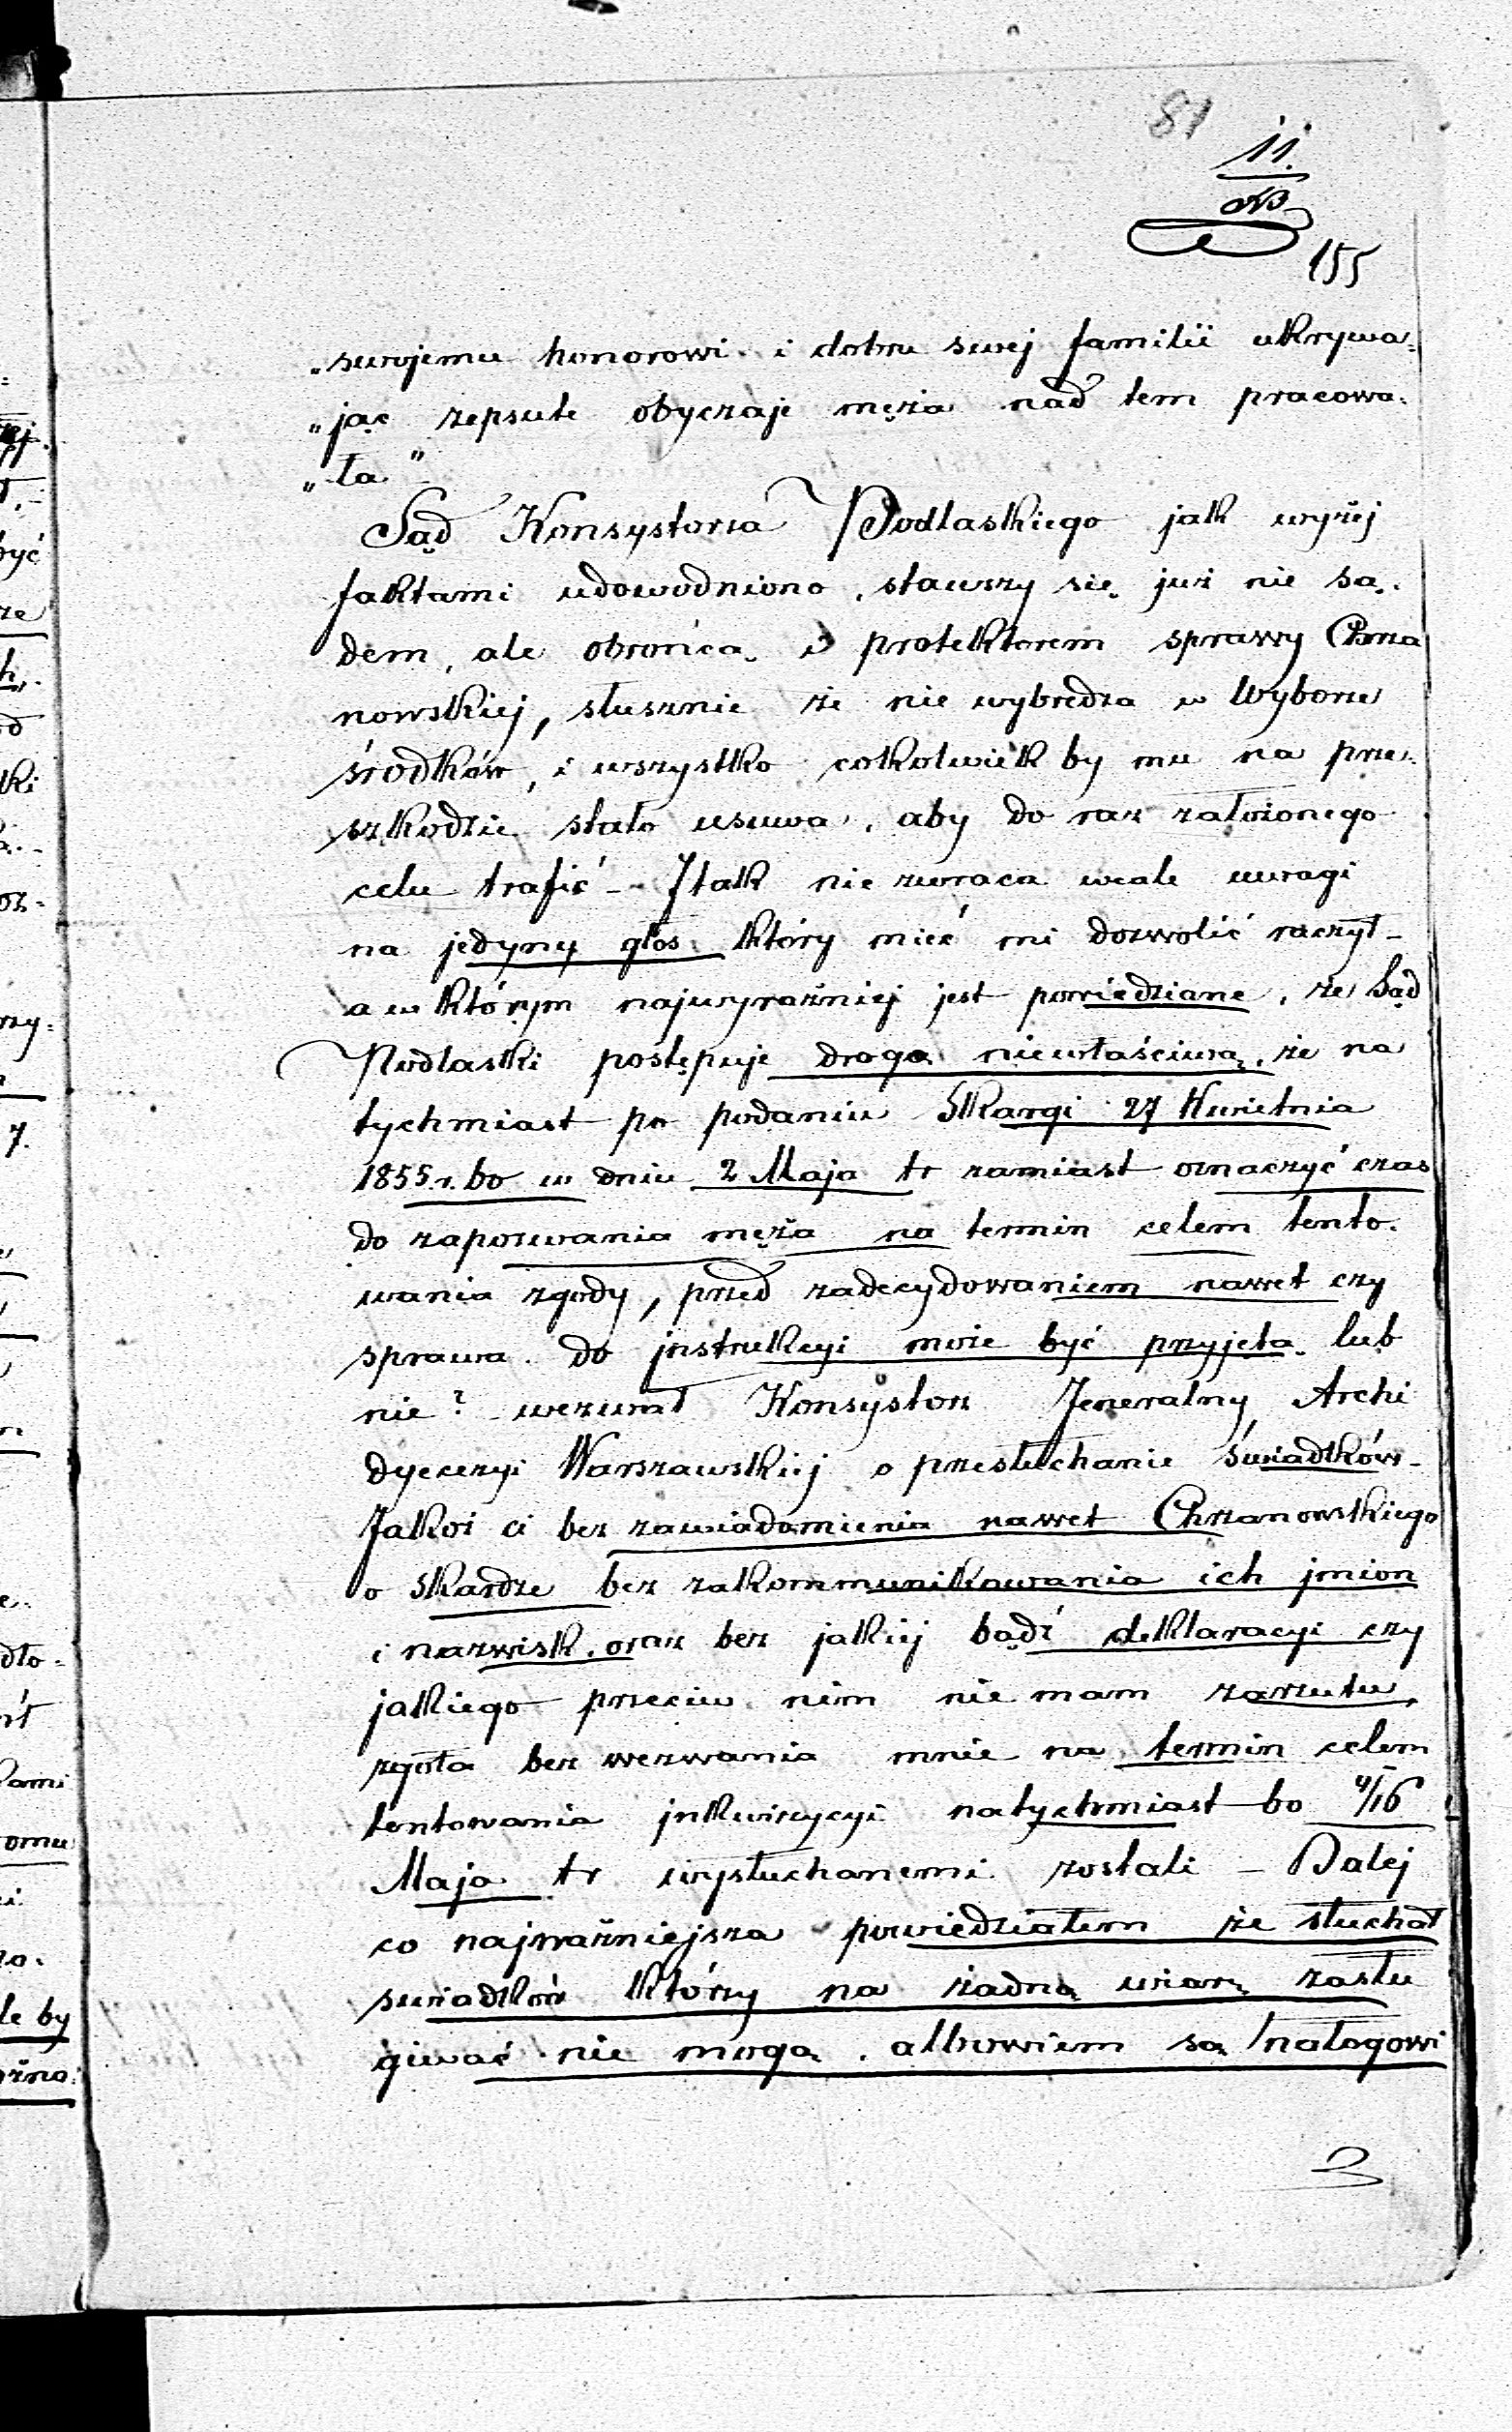 81
11.
155
„swojemu honorowi i dobru swej familii ukrywa=
„jąc zepsute obyczaje męża nad tem pracowa=
„ła"
Sąd Konsystorza Podlaskiego jak wyżej
faktami udowodniono, stawszy się już nie są=
dem, ale obrońcą i protektorem sprawy Chrza
nowskiej, słusznie że nie wybredza w Wyborze
środków, i wszystko cokolwiek by mu na prze=
szkodzie stało usuwa, aby do raz założonego
celu trafić – I tak nie zwraca wcale uwagi
na jedyny głos, który mieć mi dozwolić raczył –
a w którym najwyraźniej jest powiedziane, że Sąd
Podlaski postępuje drogą niewłaściwą, że na
tychmiast po podaniu Skargi 27 Kwietnia
1855.r. bo w dniu 2 Maja tr zamiast oznaczyć czas
do zapozwania męża na termin celem tento=
wania zgody, przed zadecydowaniem nawet czy
sprawa do jnstrukcyi może być przyjętą lub
nie? – wezwał Konsystorz Jeneralny Archi
dyecezyi Warszawskiej o przesłuchanie świadków –
Jakoż ci bez zawiadomienia nawet Chrzanowskiego
o skardze bez zakommunikowania ich jmion
i nazwisk, oraz bez jakiej bądź deklaracyi czy
jakiego przeciw nim nie mam zarzutu,
zgoła bez wezwania mnie na termin celem
tentowania jnkwizycyi natychmiast bo 4/16
Maja tr wysłuchanemi zostali – Dalej
co najważniejsza powiedziałem że słuchał
świadków którzy na żadną wiarę zasłu
giwać nie mogą, albowiem są nałogowi
3